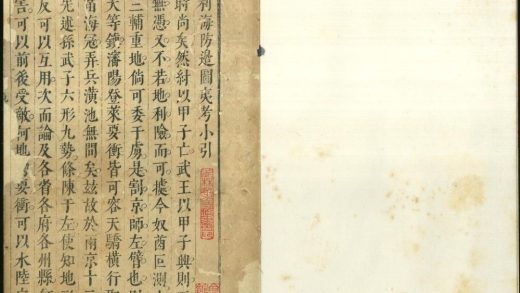 海防邉圖夷考小引
時尚矣然紂以甲子亡武王以甲子興則
無憑又不若地利險而可據今奴酋叵測
三輔重地倘可委于虜是割京師左臂也
大等鎮瀋陽登萊要衝皆可容天驕橫行
海冦弄兵潢池無間矣玆故於南京十
先述孫武子六形九勢條陳于左使知地
反可以互用次而論及各省各府各州縣
可以前後受敵何地要衝可以水陸